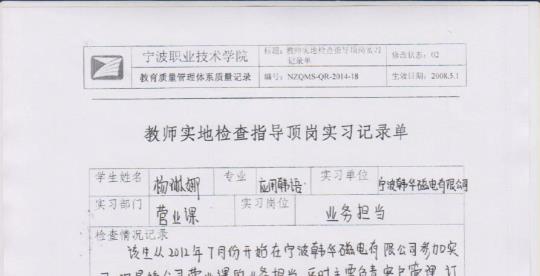 宁波职业技术学院
教育质量管理体系质量记录
标题：教师实地检查指导顶岗实习记录单
编号：NZQMS-QR-2014-18
修改状态：02
生效日期：2008.5.1
教师实地检查指导顶岗实习记录单
学生姓名 杨淑娜 专业 应用韩语 实习单位 宁波韩华磁电有限公司
实习部门 营业课 实习岗位 业务担当
检查情况记录
该生从2012年7月份开始在宁波韩华磁电有限公司参加实